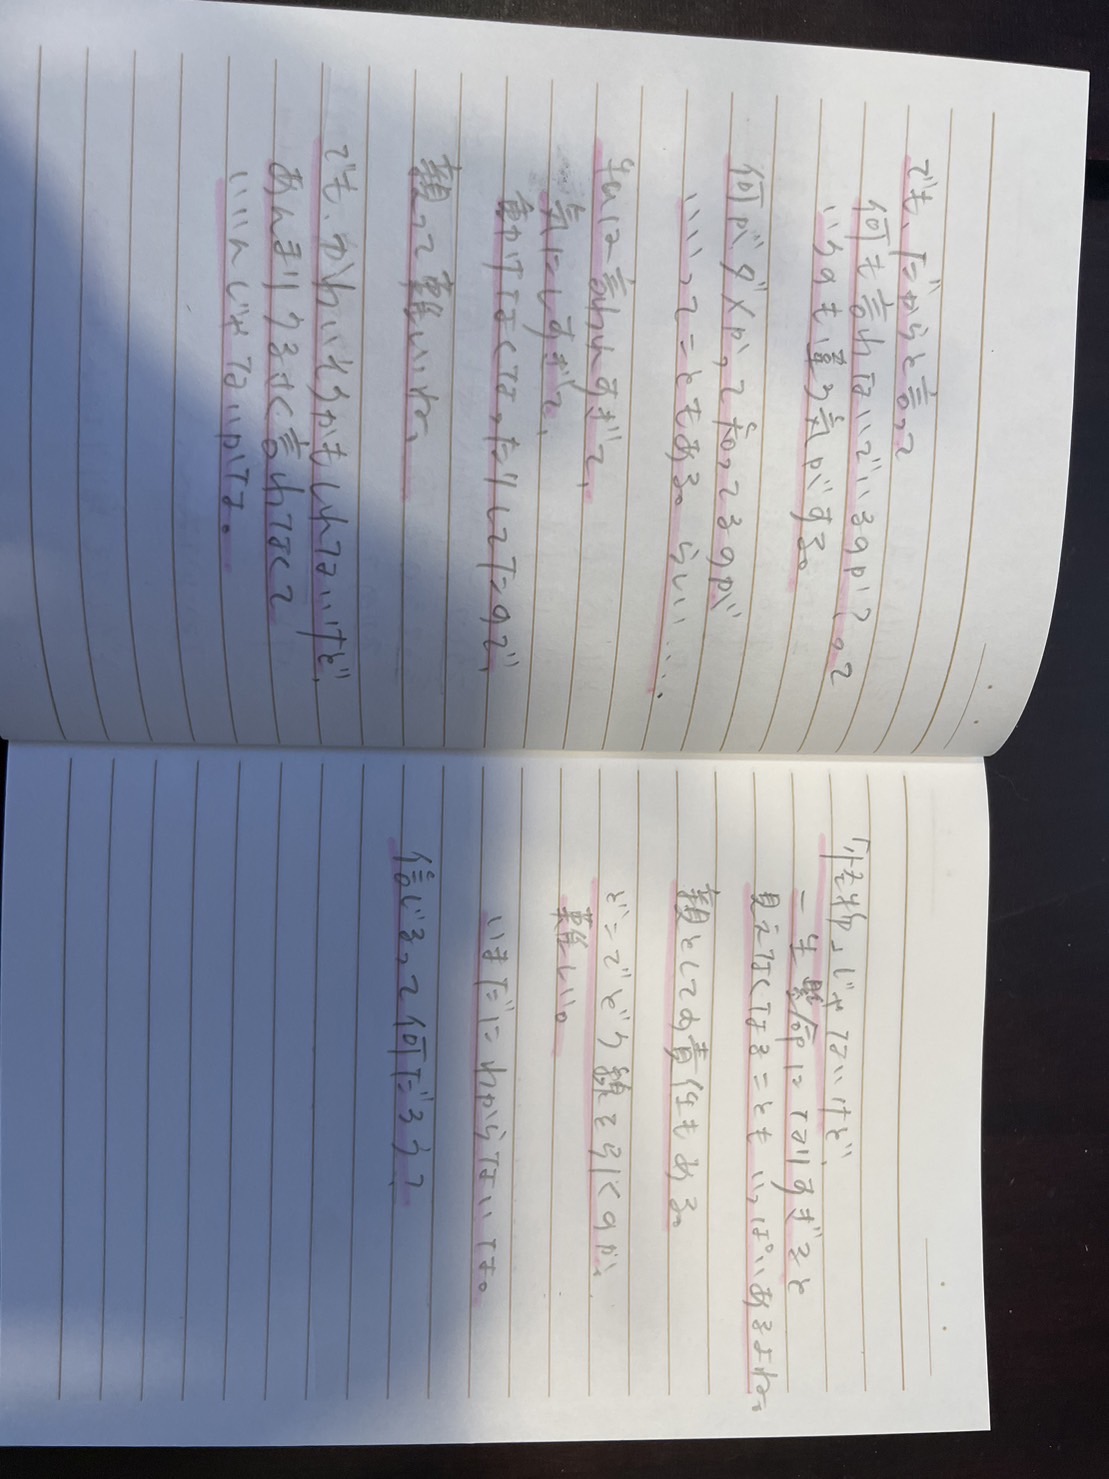 でも、だからと言って
何も言れないでいるのが?って
いうのも違う気がする。
何がダメか、って知ってるのが
いいってこともある。らい….
私は言われすぎて、
気にしすぎて、
動けなくなったりしてたので、
親って難しいね、
でも、かわいそうかもしれないけど、
あんまりうるさく言れなくて
いいんじゃないかな。
「性格」じゃないけど、
一生懸命になりすぎると
見えなくなることもいっぱいあるよね。
親としての責任もある。
どこでどう線を引くのか、
難しい。
いまだにわからないな。
信じるって何だろうて